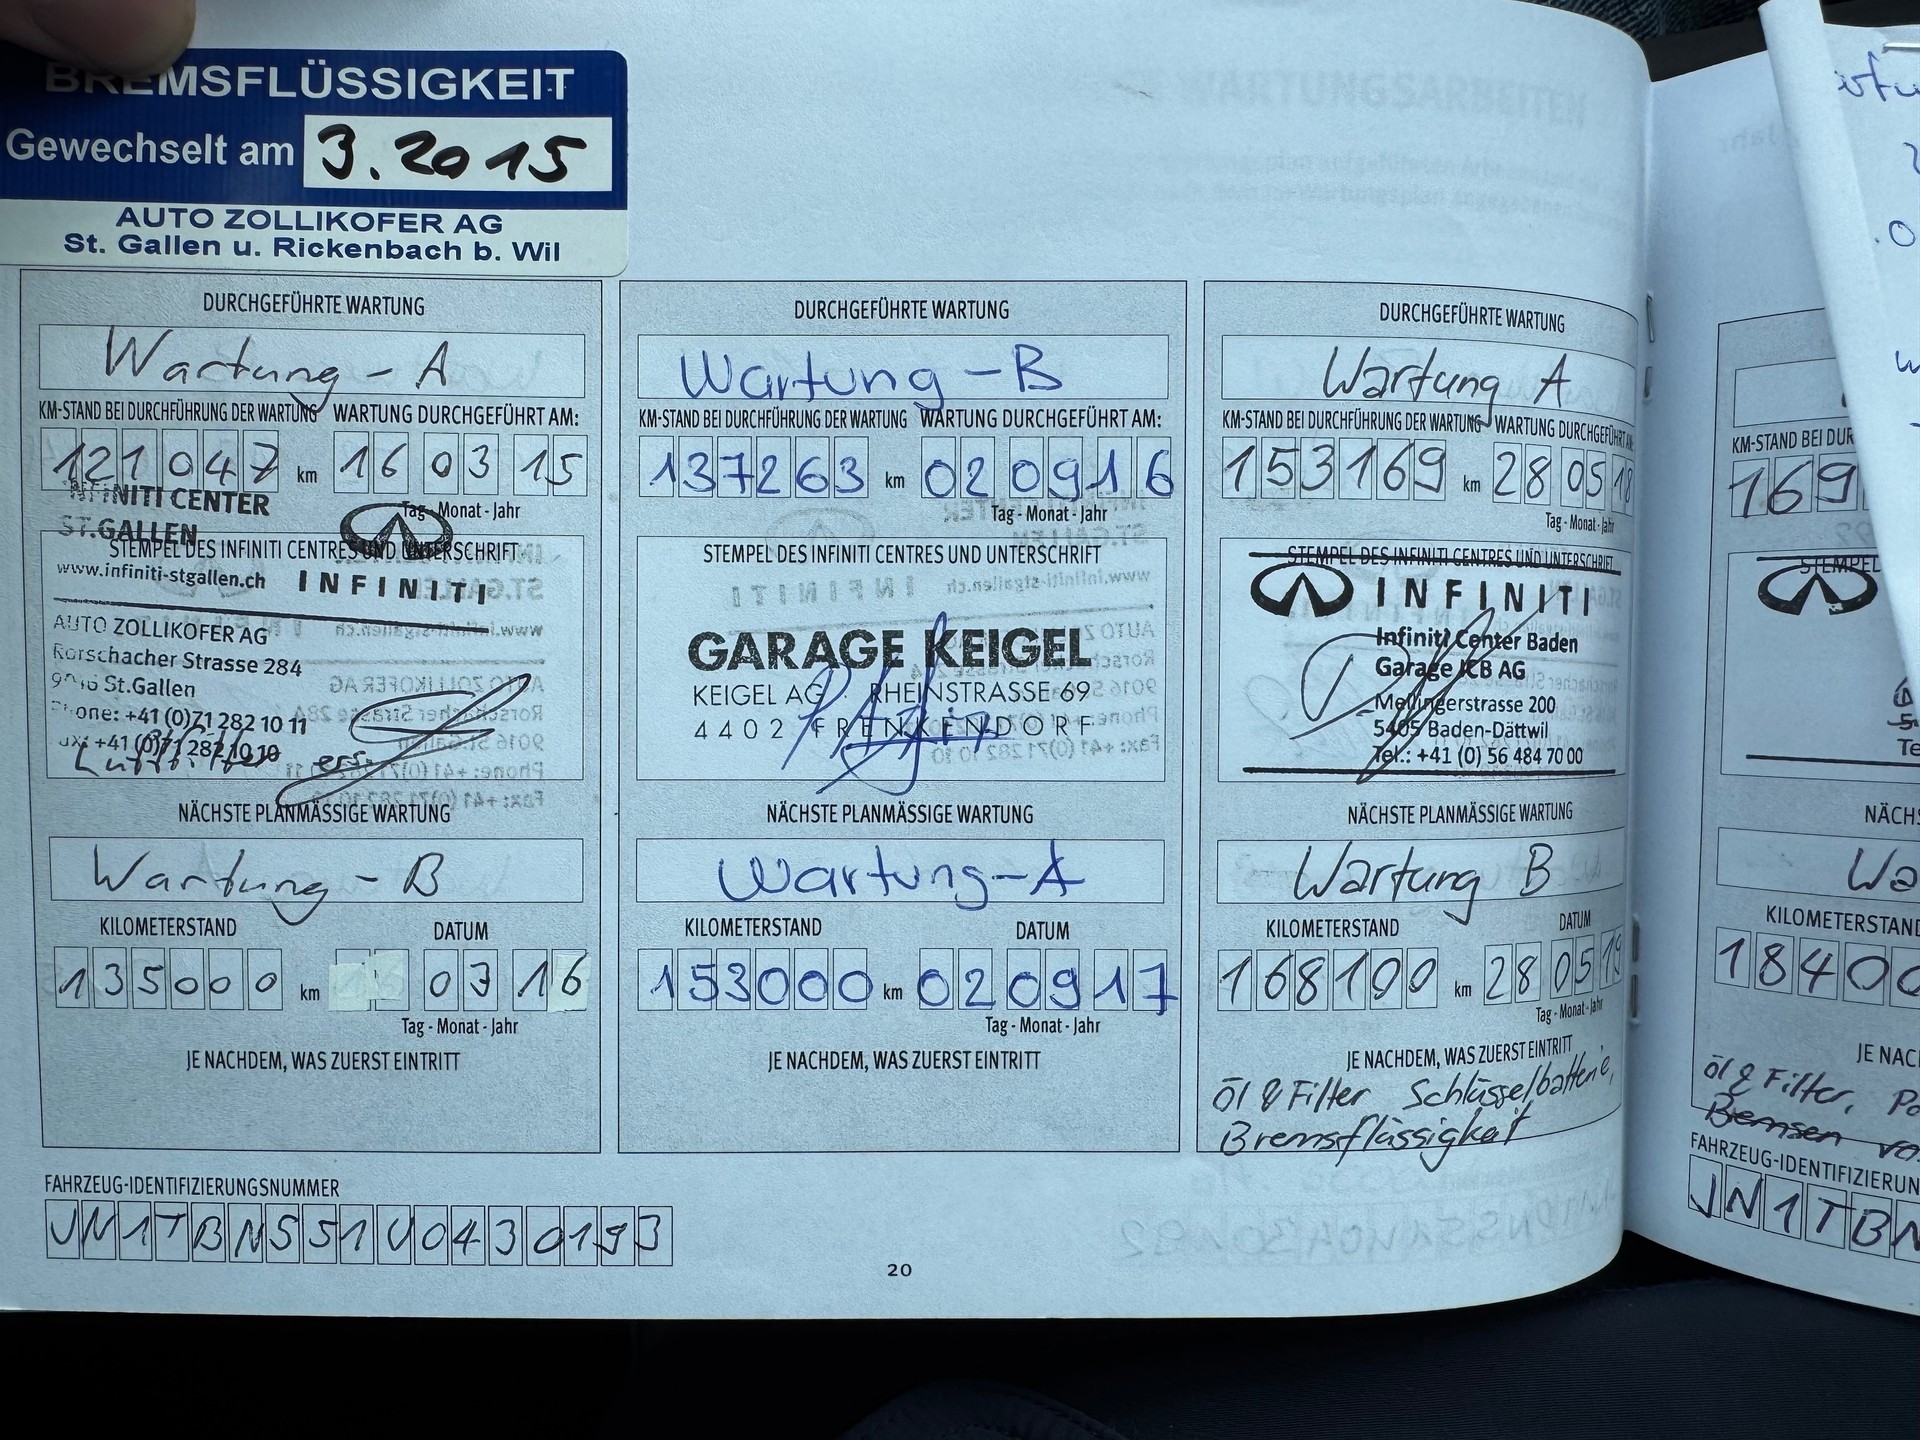 BREMSFLÜSSIGKEIT
Gewechselt am 3.2015
AUTO ZOLLIKOFER AG
St. Gallen u. Rickenbach b. Wil
DURCHGEFÜHRTE WARTUNG
Wartung - A
KM-STAND BEI DURCHFÜHRUNG DER WARTUNG WARTUNG DURCHGEFÜHRT AM:
121047 km 16 03 15
Tag - Monat - Jahr
INFINITI CENTER
ST.GALLEN
STEMPEL DES INFINITI CENTRES UND UNTERSCHRIFT
www.infiniti-stgallen.ch INFINITI
AUTO ZOLLIKOFER AG
Rorschacher Strasse 284
9016 St.Gallen
Phone: +41 (0)71 282 10 11
Fax: +41 (0)71 282 10 10
NÄCHSTE PLANMÄSSIGE WARTUNG
Wartung - B
KILOMETERSTAND DATUM
135000 km 03 16
Tag - Monat - Jahr
JE NACHDEM, WAS ZUERST EINTRITT
DURCHGEFÜHRTE WARTUNG
Wartung - B
KM-STAND BEI DURCHFÜHRUNG DER WARTUNG WARTUNG DURCHGEFÜHRT AM:
137263 km 02 09 16
Tag - Monat - Jahr
STEMPEL DES INFINITI CENTRES UND UNTERSCHRIFT
GARAGE KEIGEL
KEIGEL AG · RHEINSTRASSE 69
4402 FRENKENDORF
NÄCHSTE PLANMÄSSIGE WARTUNG
Wartung-A
KILOMETERSTAND DATUM
153000 km 02 09 17
Tag - Monat - Jahr
JE NACHDEM, WAS ZUERST EINTRITT
DURCHGEFÜHRTE WARTUNG
Wartung A
KM-STAND BEI DURCHFÜHRUNG DER WARTUNG WARTUNG DURCHGEFÜHRT AM:
153169 km 28 05 18
Tag - Monat - Jahr
STEMPEL DES INFINITI CENTRES UND UNTERSCHRIFT
INFINITI
Infiniti Center Baden
Garage ICB AG
Mellingerstrasse 200
5405 Baden-Dättwil
Tel.: +41 (0) 56 484 70 00
NÄCHSTE PLANMÄSSIGE WARTUNG
Wartung B
KILOMETERSTAND DATUM
168100 km 28 05 19
Tag - Monat - Jahr
JE NACHDEM, WAS ZUERST EINTRITT
Öl & Filter Schlüsselbatterie,
Bremsflüssigkeit
FAHRZEUG-IDENTIFIZIERUNGSNUMMER
JN1TBNS51U0430193
20
KM-STAND BEI DUR
169
STEMPEL
Te
NÄCHS
Wa
KILOMETERSTAND
18400
JE NAC
Öl & Filter, Po
Bemsen vo
FAHRZEUG-IDENTIFIZIERUN
JN1TBN